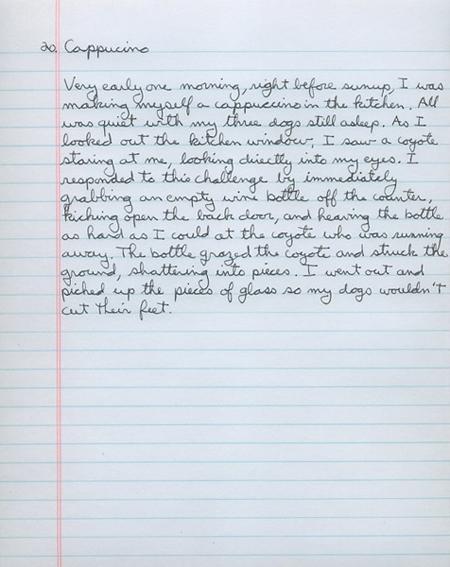 20. Cappucino
Very early one morning, right before sunup, I was
making myself a cappuccino in the kitchen. All
was quiet with my three dogs still asleep. As I
looked out the kitchen window, I saw a coyote
staring at me, looking directly into my eyes. I
responded to this challenge by immediately
grabbing an empty wine bottle off the counter,
kicking open the back door, and heaving the bottle
as hard as I could at the coyote who was running
away. The bottle grazed the coyote and struck the
ground, shattering into pieces. I went out and
picked up the pieces of glass so my dogs wouldn't
cut their feet.